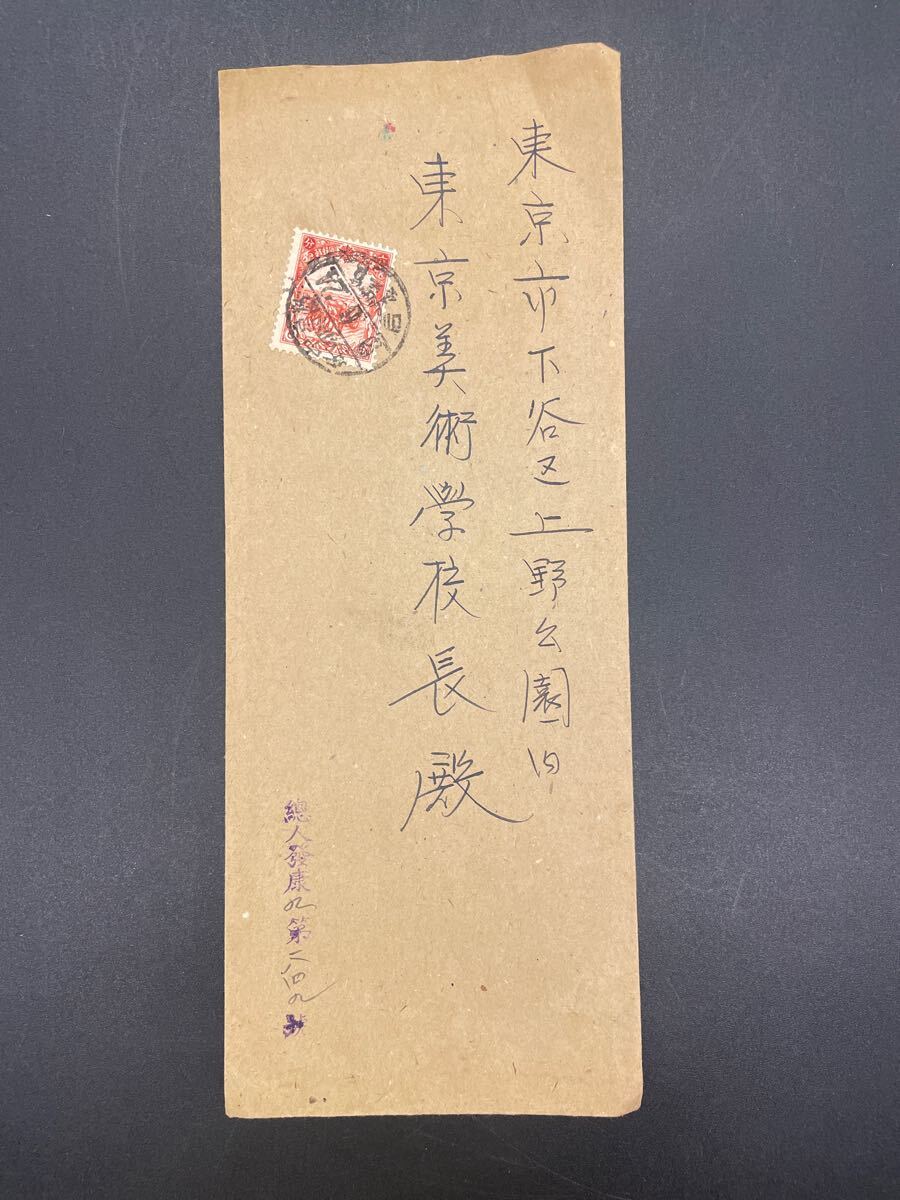 東京市下谷区上野公園内
東京美術學校長殿
分
總人發康九第一八四九號